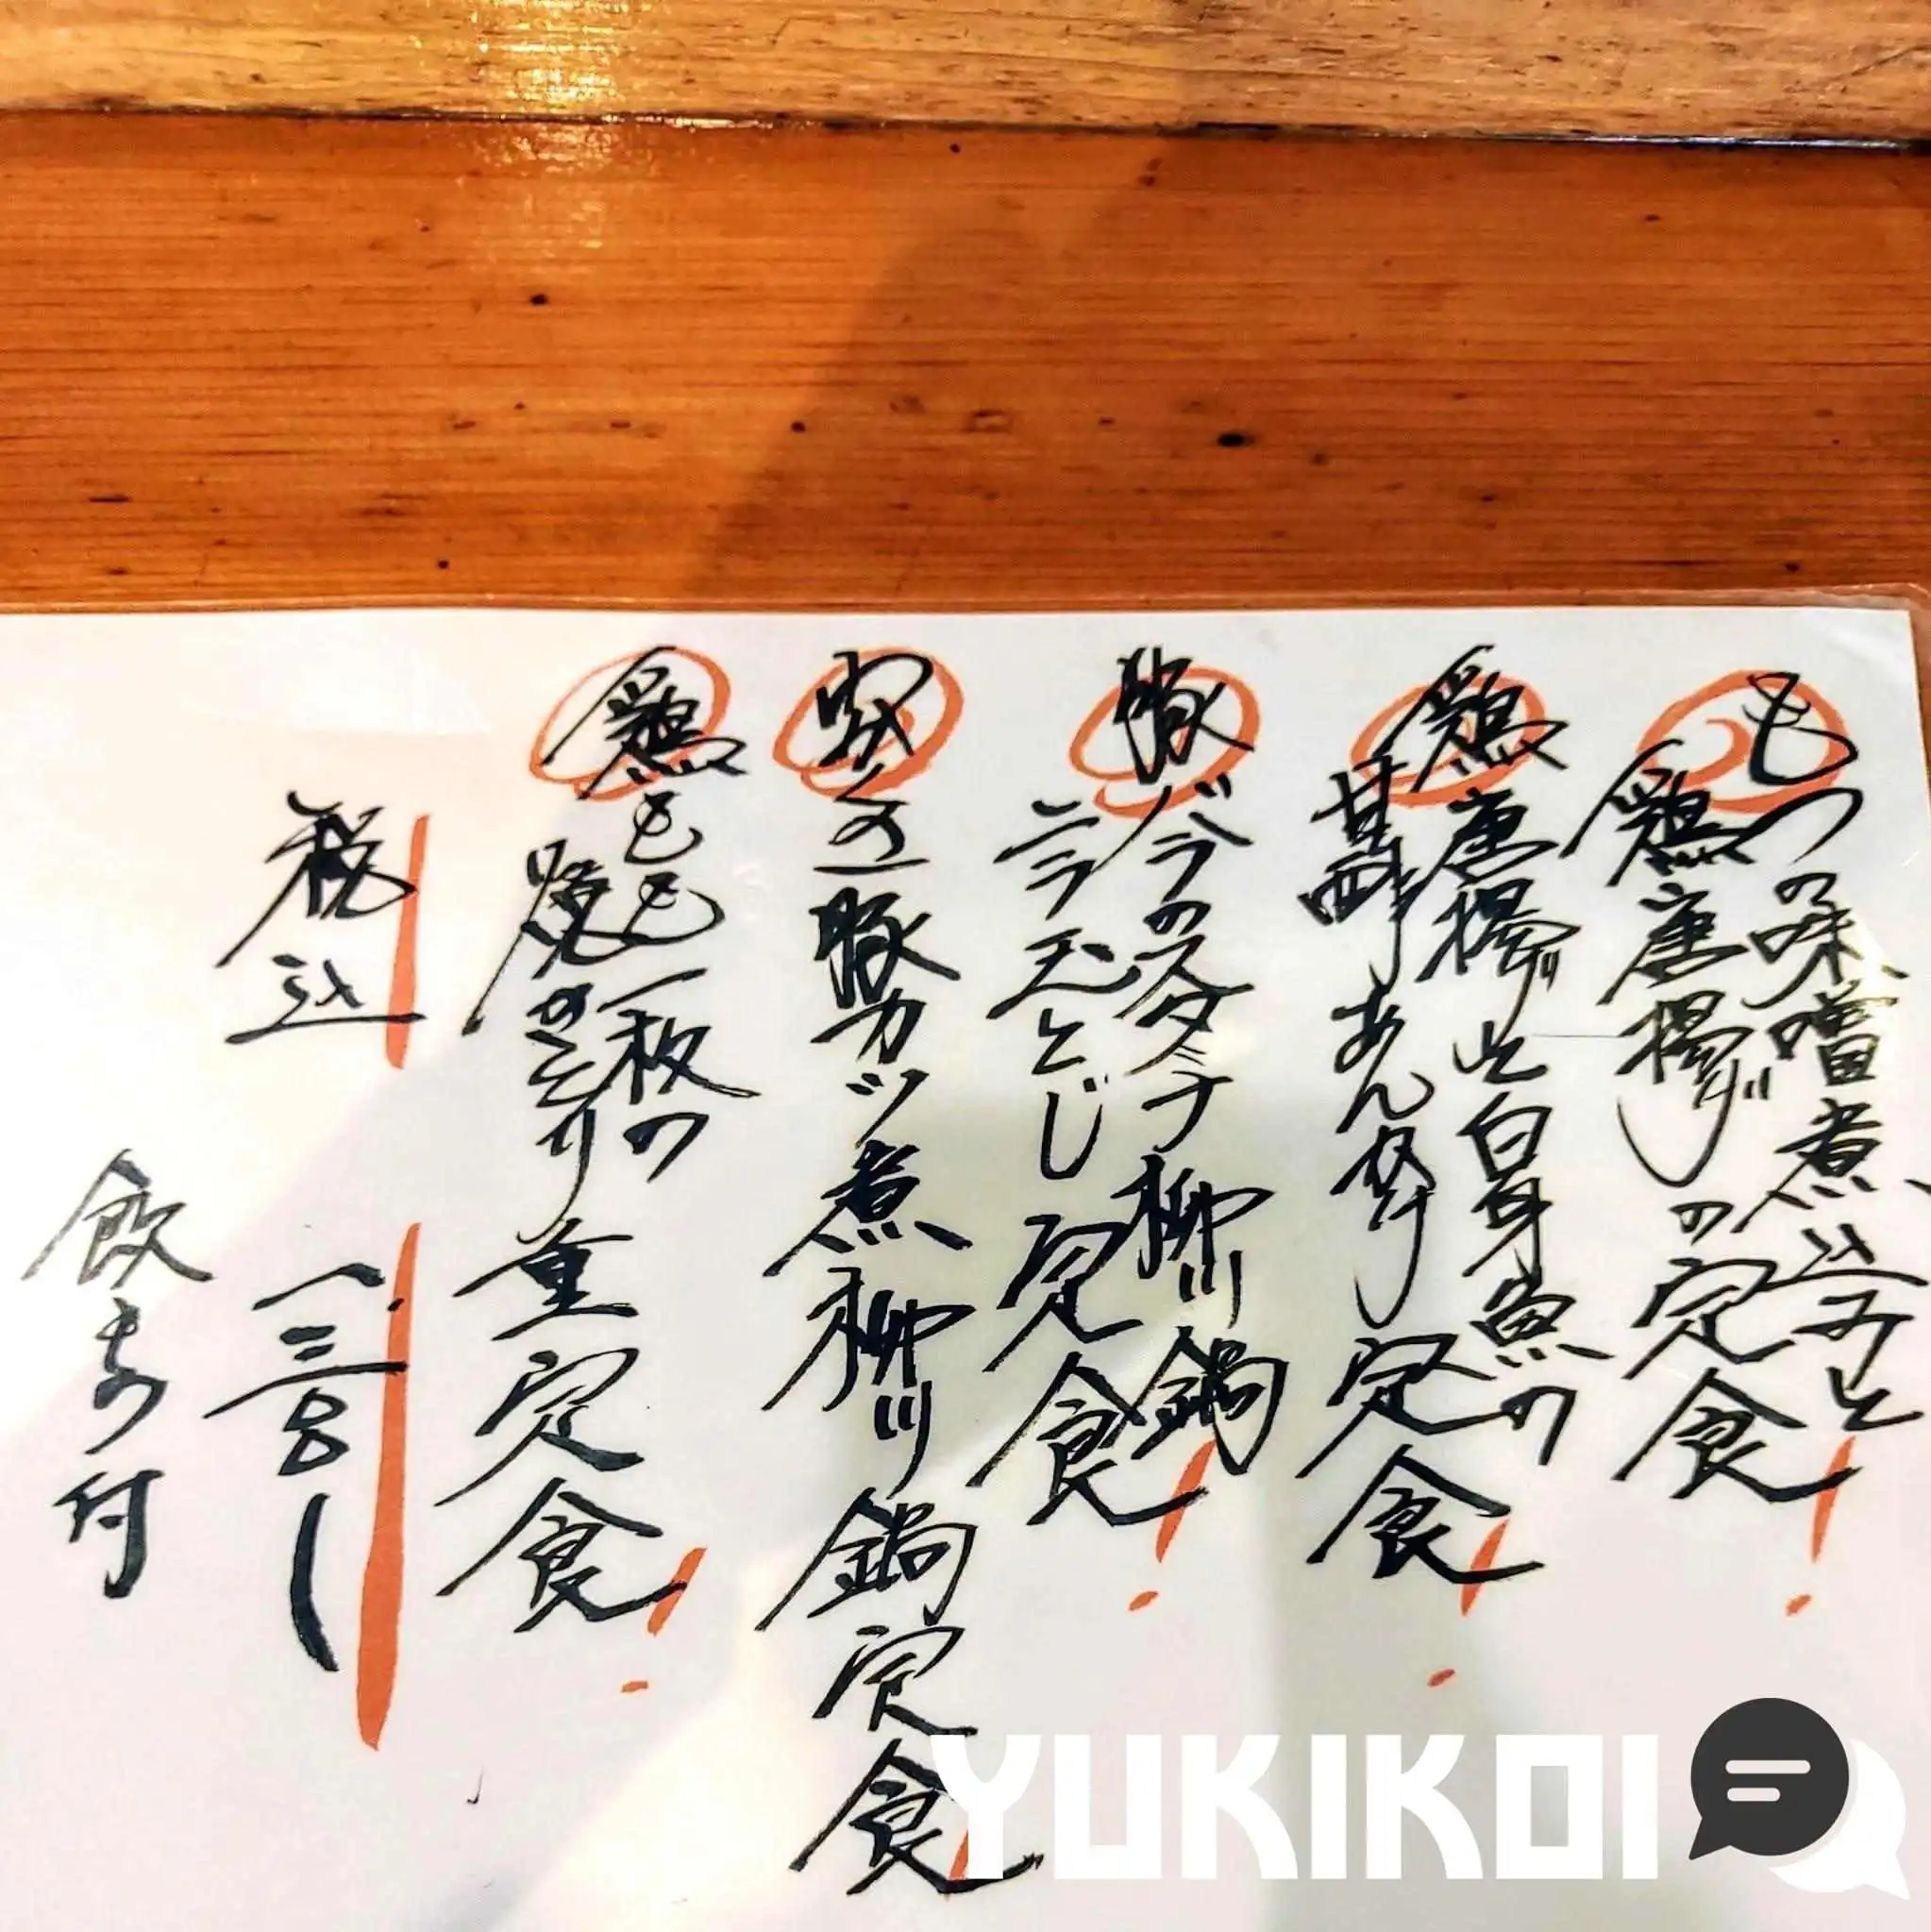 もつの味噌煮込みと
鶏唐揚げの定食!
鶏唐揚げと白身魚の
甘酢あんかけ定食!
豚バラのスタミナ柳川鍋
ニラ玉とじ定食!
豚カツ煮柳川鍋定食!
鶏もも一枚の
焼きとり重定食!
税込
一三〇〇
飲もの付
YUKIKOI